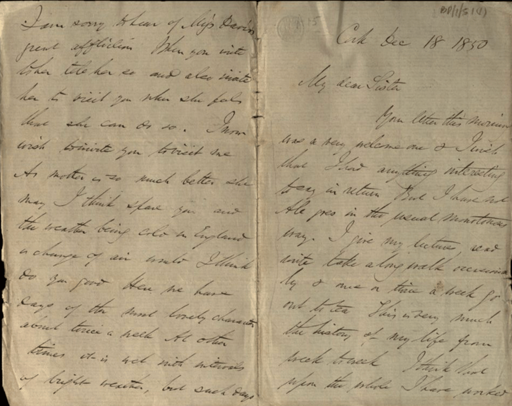 Cork Dec 18 1850
My dear Sister
Your letter this morning
was a very welcome one & I wish
that I had anything interesting
to say in return But I have not
All goes in the usual monotonous
way. I give my lectures read
write take a long walk occasional
ly & once or twice a week go
out to tea This is very much
the history of my life from
week to week I think that
upon the whole I have worked
I am sorry to hear of Miss Davis's
great affliction When you write
to her tell her so and also invite
her to visit you when she feels
that she can do so. I now
wish to invite you to visit me
As mother is so much better she
may I think spare you and
the weather being cold in England
a change of air would I think
do you good Here we have
days of the most lovely character
about twice a week At other
times it is wet with intervals
of bright weather, but such days